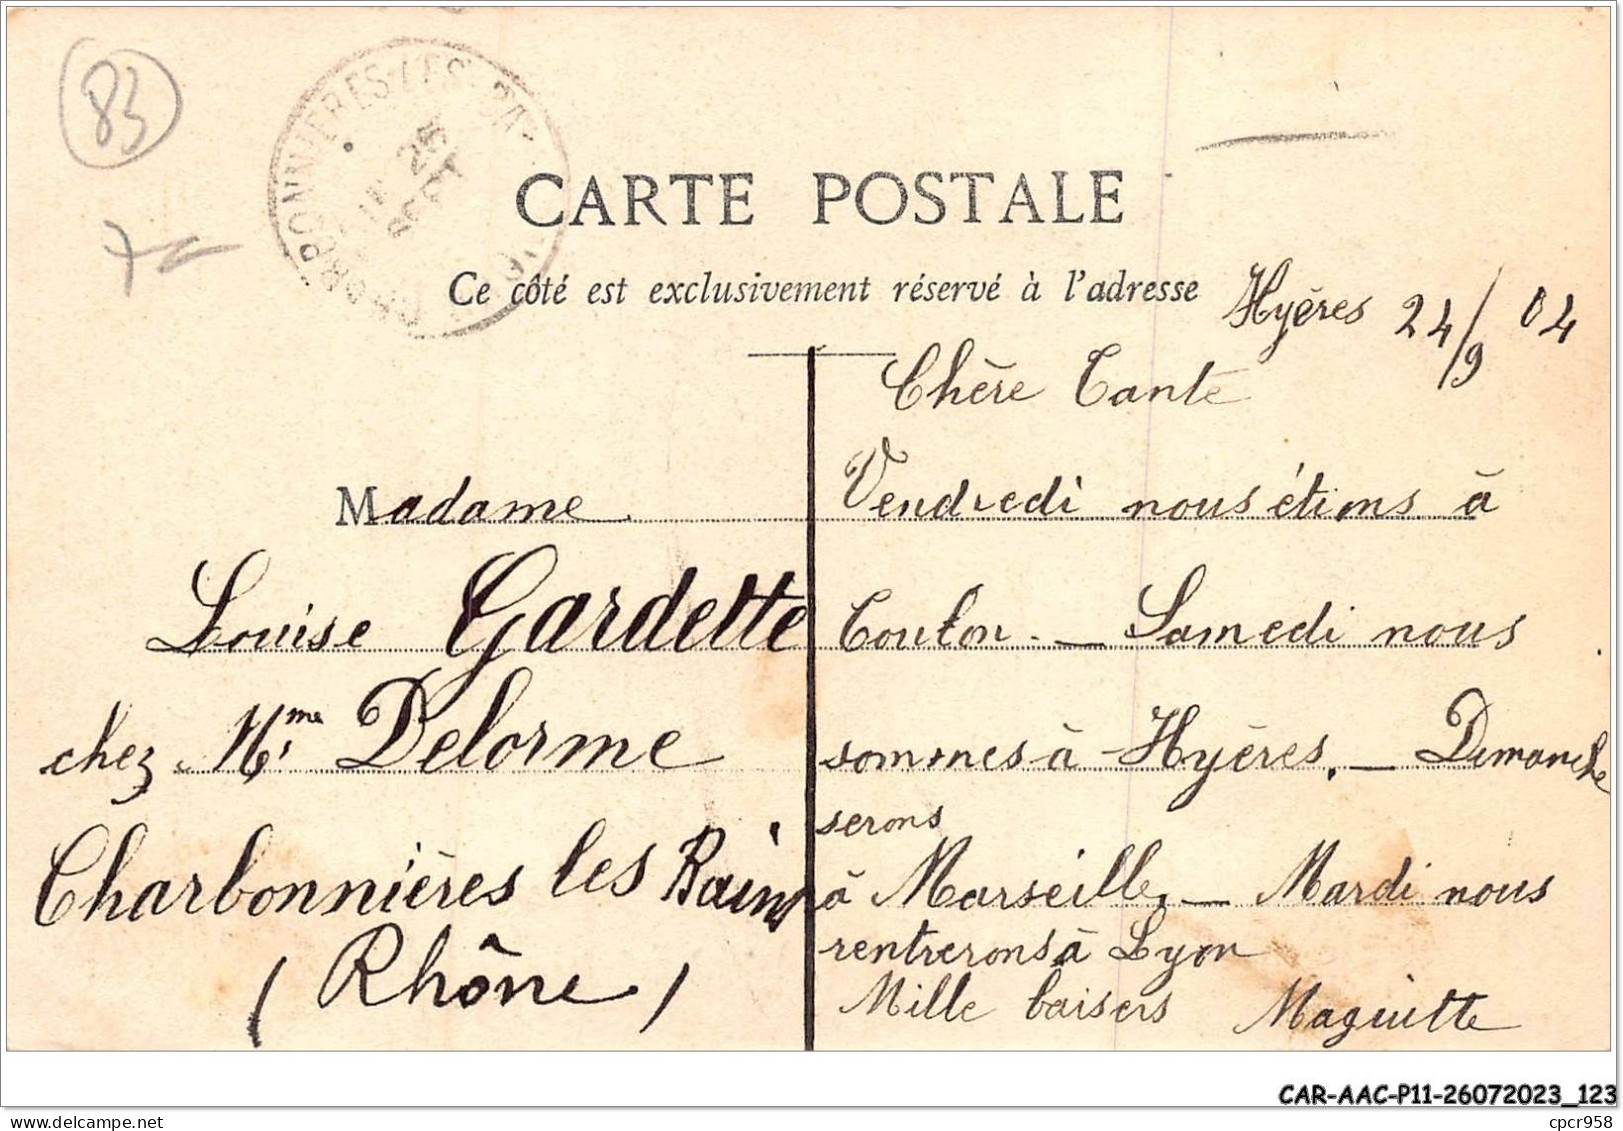 83
CARTE POSTALE
Ce côté est exclusivement réservé à l'adresse
Hyères 24/9 04
Chère Tante
Vendredi nous étions à
Toulon. — Samedi nous
sommes à Hyères. — Dimanche
serons
à Marseille. — Mardi nous
rentrerons à Lyon
Mille baisers Maguitte
Madame
Louise Gardette
chez Mme Delorme
Charbonnières les Bains
(Rhône)
CAR-AAC-P11-26072023_123
cpcr958